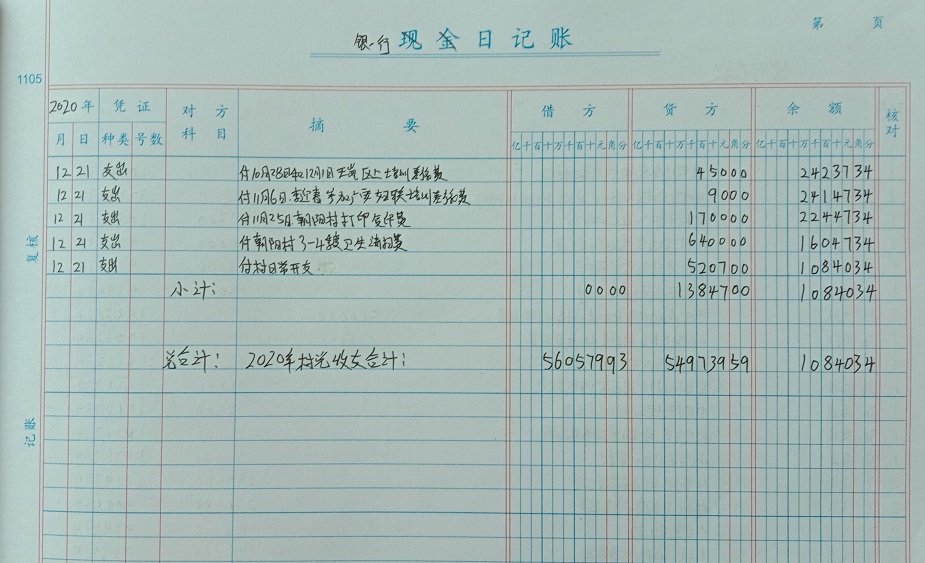 第 页
银行 现金日记账
1105
2020年 凭证 对方科目 摘要 借方 贷方 余额 核对
月 日 种类 号数 亿千百十万千百十元角分 亿千百十万千百十元角分 亿千百十万千百十元角分
12 21 支出 付10月28日和12月1日 培训差旅费 45000 2423734
12 21 支出 付11月6日 参加 妇联培训差旅费 9000 2414734
12 21 支出 付11月25日朝阳村打印复印费 170000 2244734
12 21 支出 付朝阳村3-4 卫生清扫费 640000 1604734
12 21 支出 付村日常开支 520700 1084034
小计: 0000 1384700 1084034
总合计: 2020年村 收支合计: 56057993 54973959 1084034
复核
记账